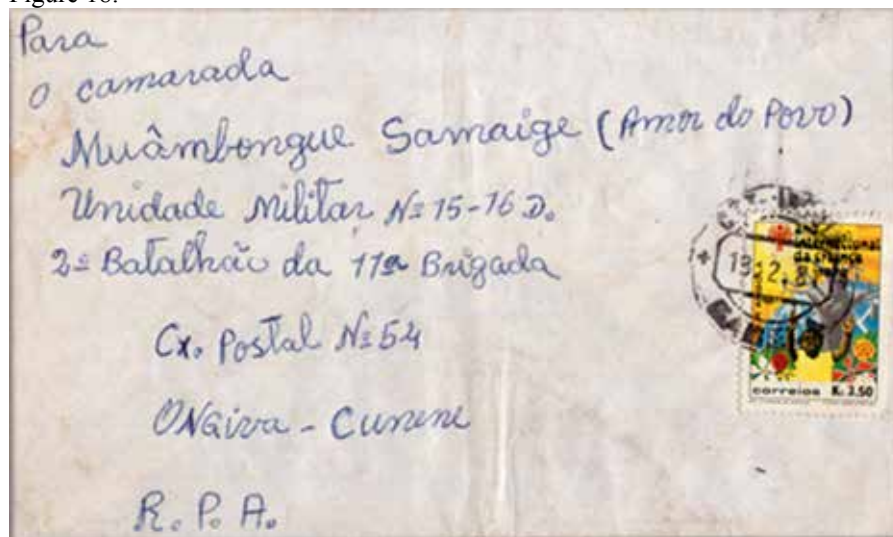 Figure 18:
Para
o camarada
Muâmbongue Samaige (Amor do Povo)
Unidade Militar Nº 15-16 D.
2º Batalhão da 11ª Brigada
Cx. Postal Nº 54
ONGiva - Cunene
R. P. A.
internacional
da criança
correios K. 3.50